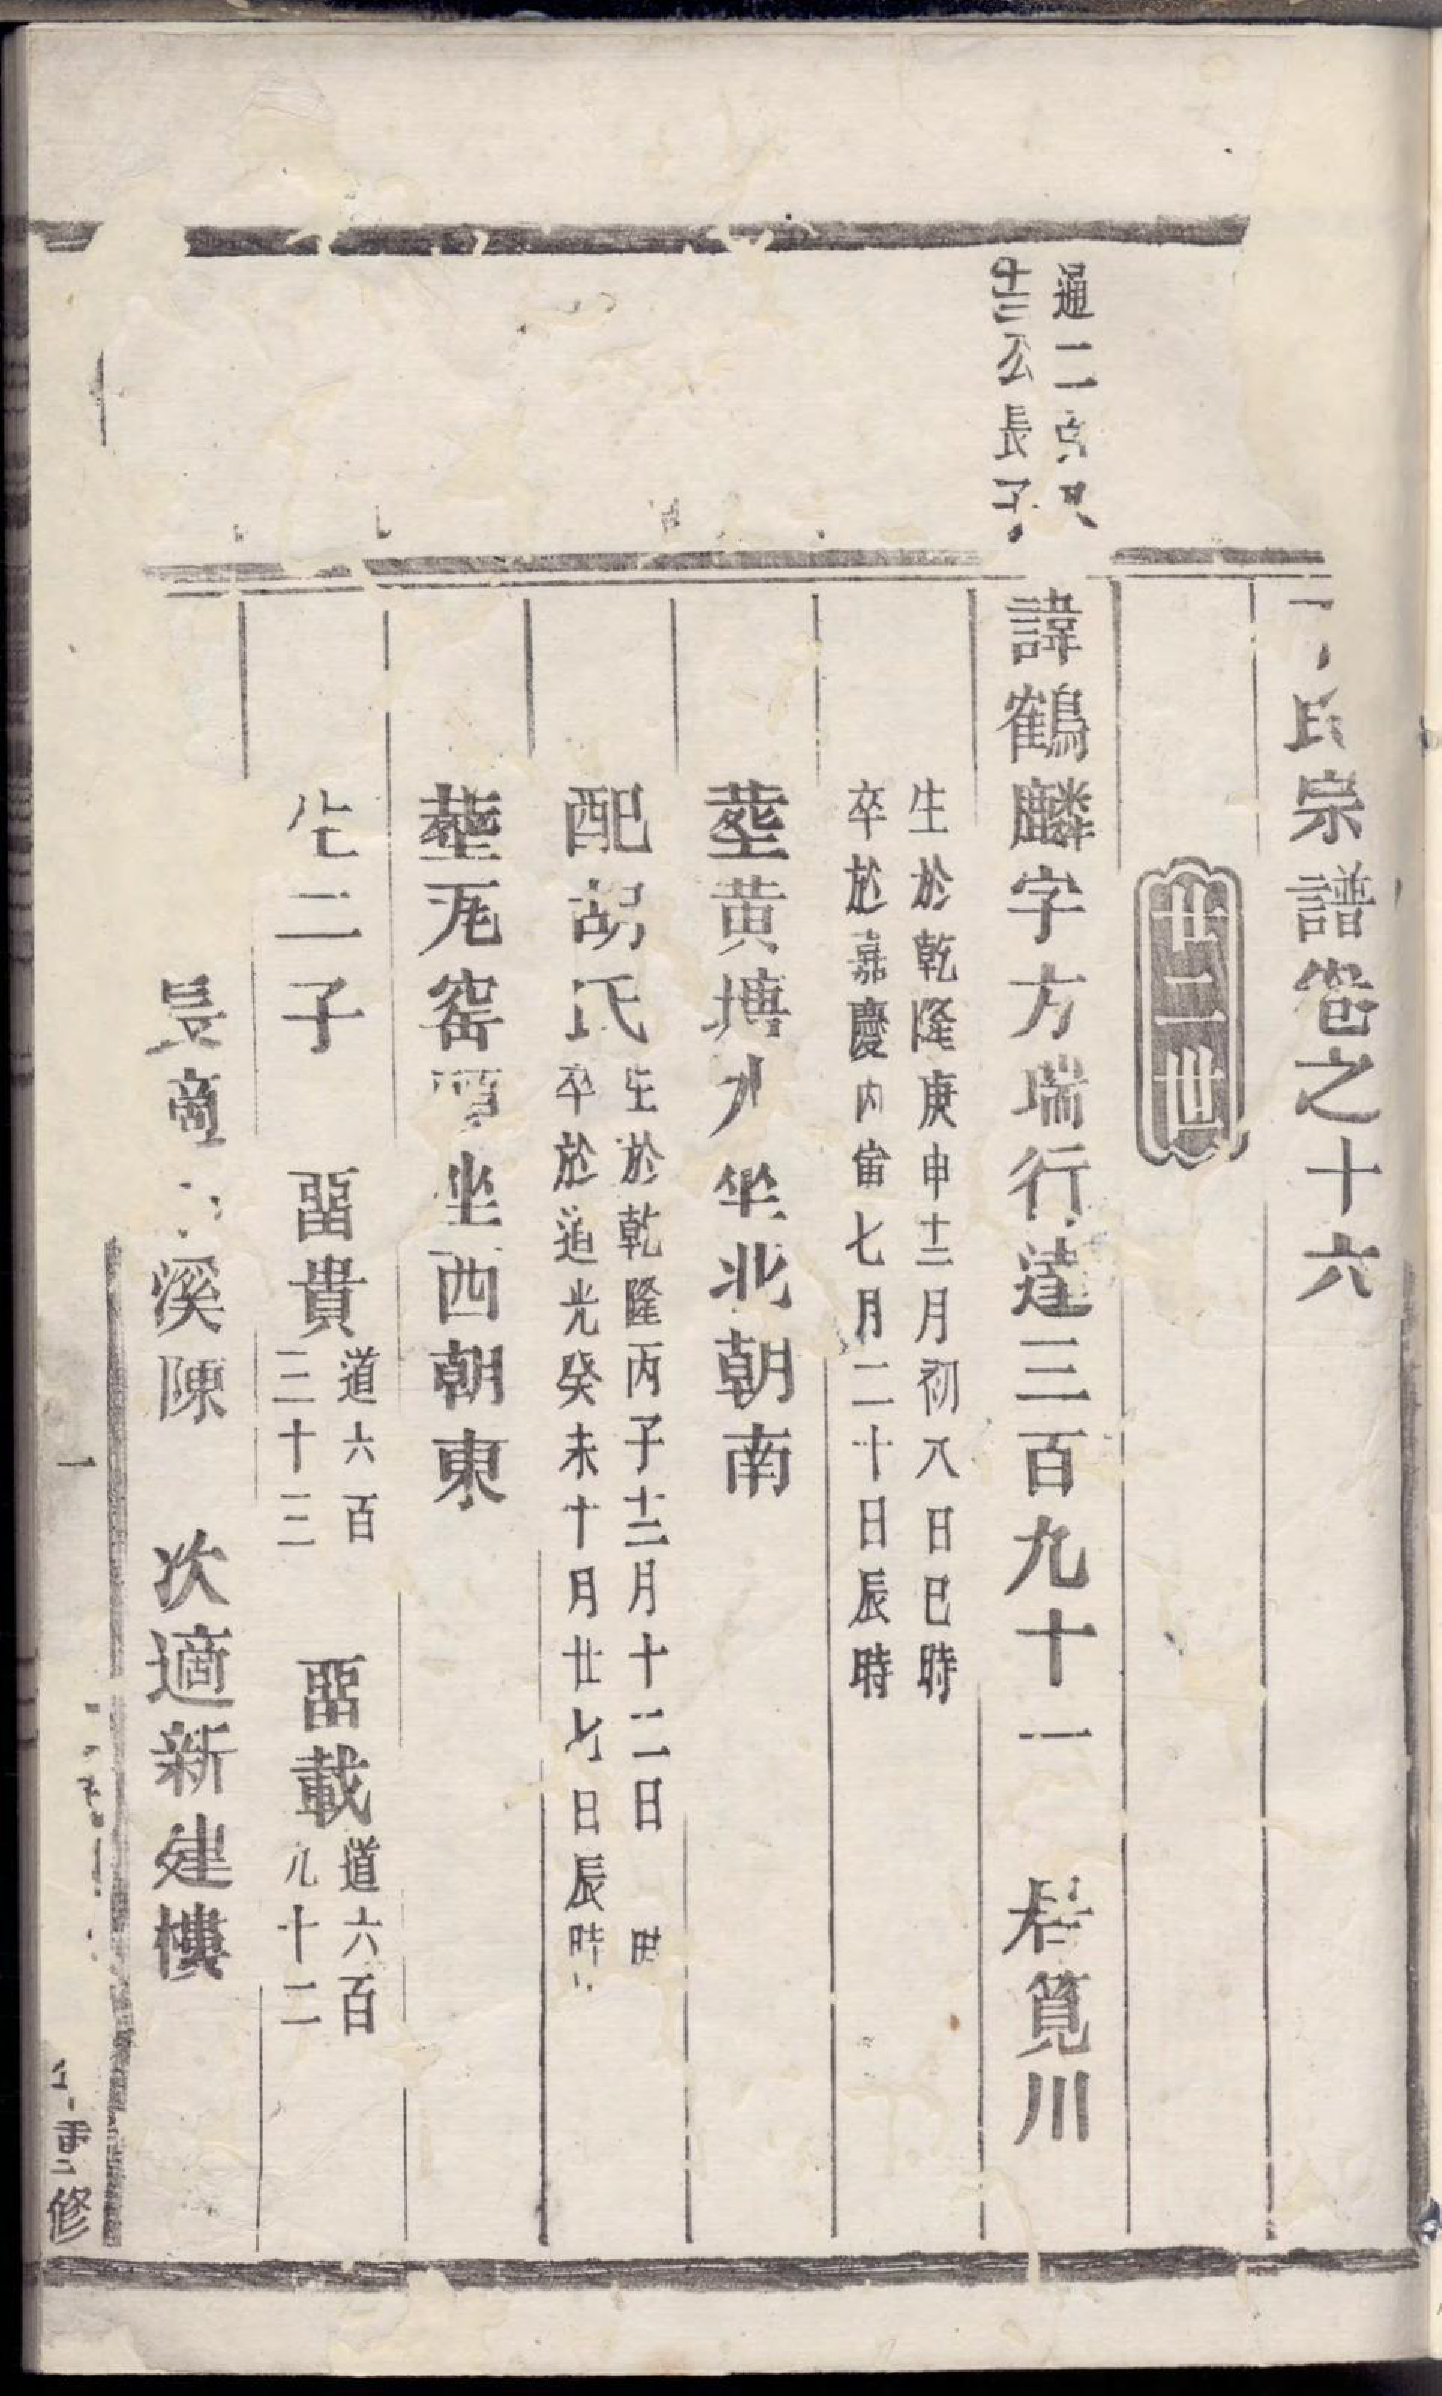 氏宗譜卷之十六
廿二世
通二百
十三公長子
諱鶴麟字方瑞行達三百九十一 居筧川
生於乾隆庚申十二月初八日巳時
卒於嘉慶丙寅七月二十日辰時
塟黄塼 坐北朝南
配胡氏
生於乾隆丙子十二月十二日 時
卒於道光癸未十月廿七日辰時
塟瓦窑 坐西朝東
生二子 畱貴
道六百
三十三
畱載
道六百
九十二
長適 溪陳 次適新建樓
一
重修